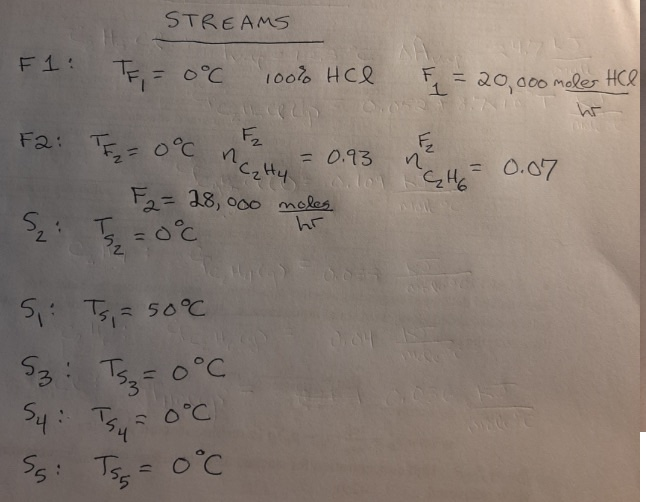 STREAMS
F1: T_F₁ = 0°C 100% HCl F₁ = 20,000 moles HCl/hr
F2: T_F₂ = 0°C n^F₂_C₂H₄ = 0.93 n^F₂_C₂H₆ = 0.07
F₂ = 28,000 moles/hr
S₂: T_S₂ = 0°C
S₁: T_S₁ = 50°C
S₃: T_S₃ = 0°C
S₄: T_S₄ = 0°C
S₅: T_S₅ = 0°C